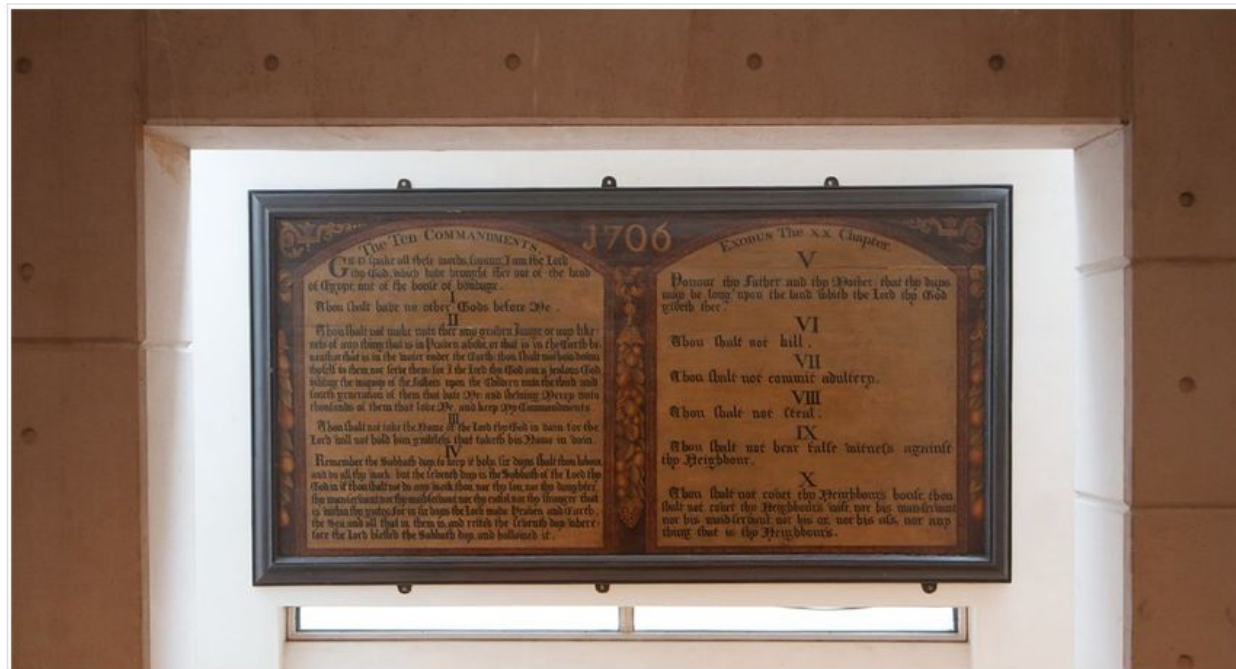 1706
The Ten Commandments.
God spake all these words, saying, I am the Lord
thy God, which have brought thee out of the land
of Egypt, out of the house of bondage.
I
Thou shalt have no other Gods before Me.
II
Thou shalt not make unto thee any graven Image, or any like-
ness of any thing that is in Heaven above, or that is in the Earth be-
neath, or that is in the water under the Earth: thou shalt not bow down
thyself to them nor serve them: for I the Lord thy God am a jealous God
visiting the iniquity of the fathers upon the Children unto the third and
fourth generation of them that hate Me: and shewing Mercy unto
thousands of them that love Me, and keep My Commandments.
III
Thou shalt not take the Name of the Lord thy God in vain for the
Lord will not hold him guiltless that taketh his Name in vain.
IV
Remember the Sabbath day, to keep it holy, six days shalt thou labour,
and do all thy work, but the seventh day is the Sabbath of the Lord thy
God in it thou shalt not do any work, thou, nor thy son, nor thy daughter
thy manservant nor thy maidservant, nor thy cattel, nor thy stranger that
is within thy gates, for in six days the Lord made Heaven and Earth,
the Sea and all that in them is, and rested the seventh day, where-
fore the Lord blessed the Sabbath day, and hallowed it.
Exodus The XX Chapter.
V
Honour thy Father and thy Mother, that thy days
may be long upon the land which the Lord thy God
giveth thee.
VI
Thou shalt not kill.
VII
Thou shalt not commit adultery.
VIII
Thou shalt not steal.
IX
Thou shalt not bear false witness against
thy Neighbour.
X
Thou shalt not covet thy Neighbours house, thou
shalt not covet thy Neighbours wife, nor his manservant
nor his maidservant, nor his ox, nor his ass, nor any
thing that is thy Neighbours.